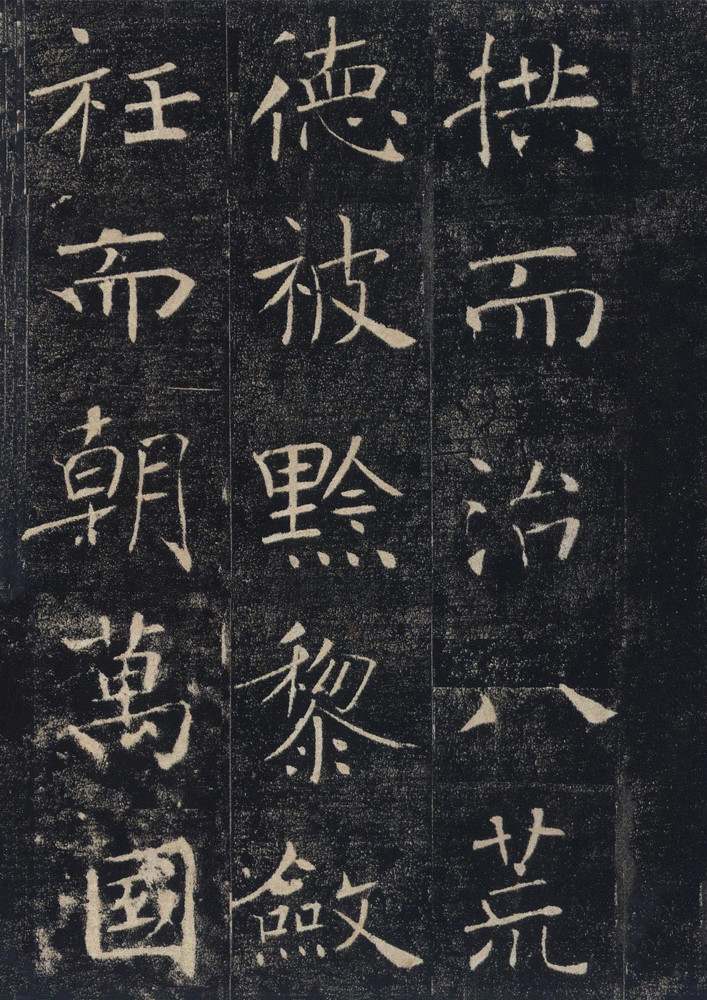 拱而治八荒
德被黔黎斂
衽而朝萬國